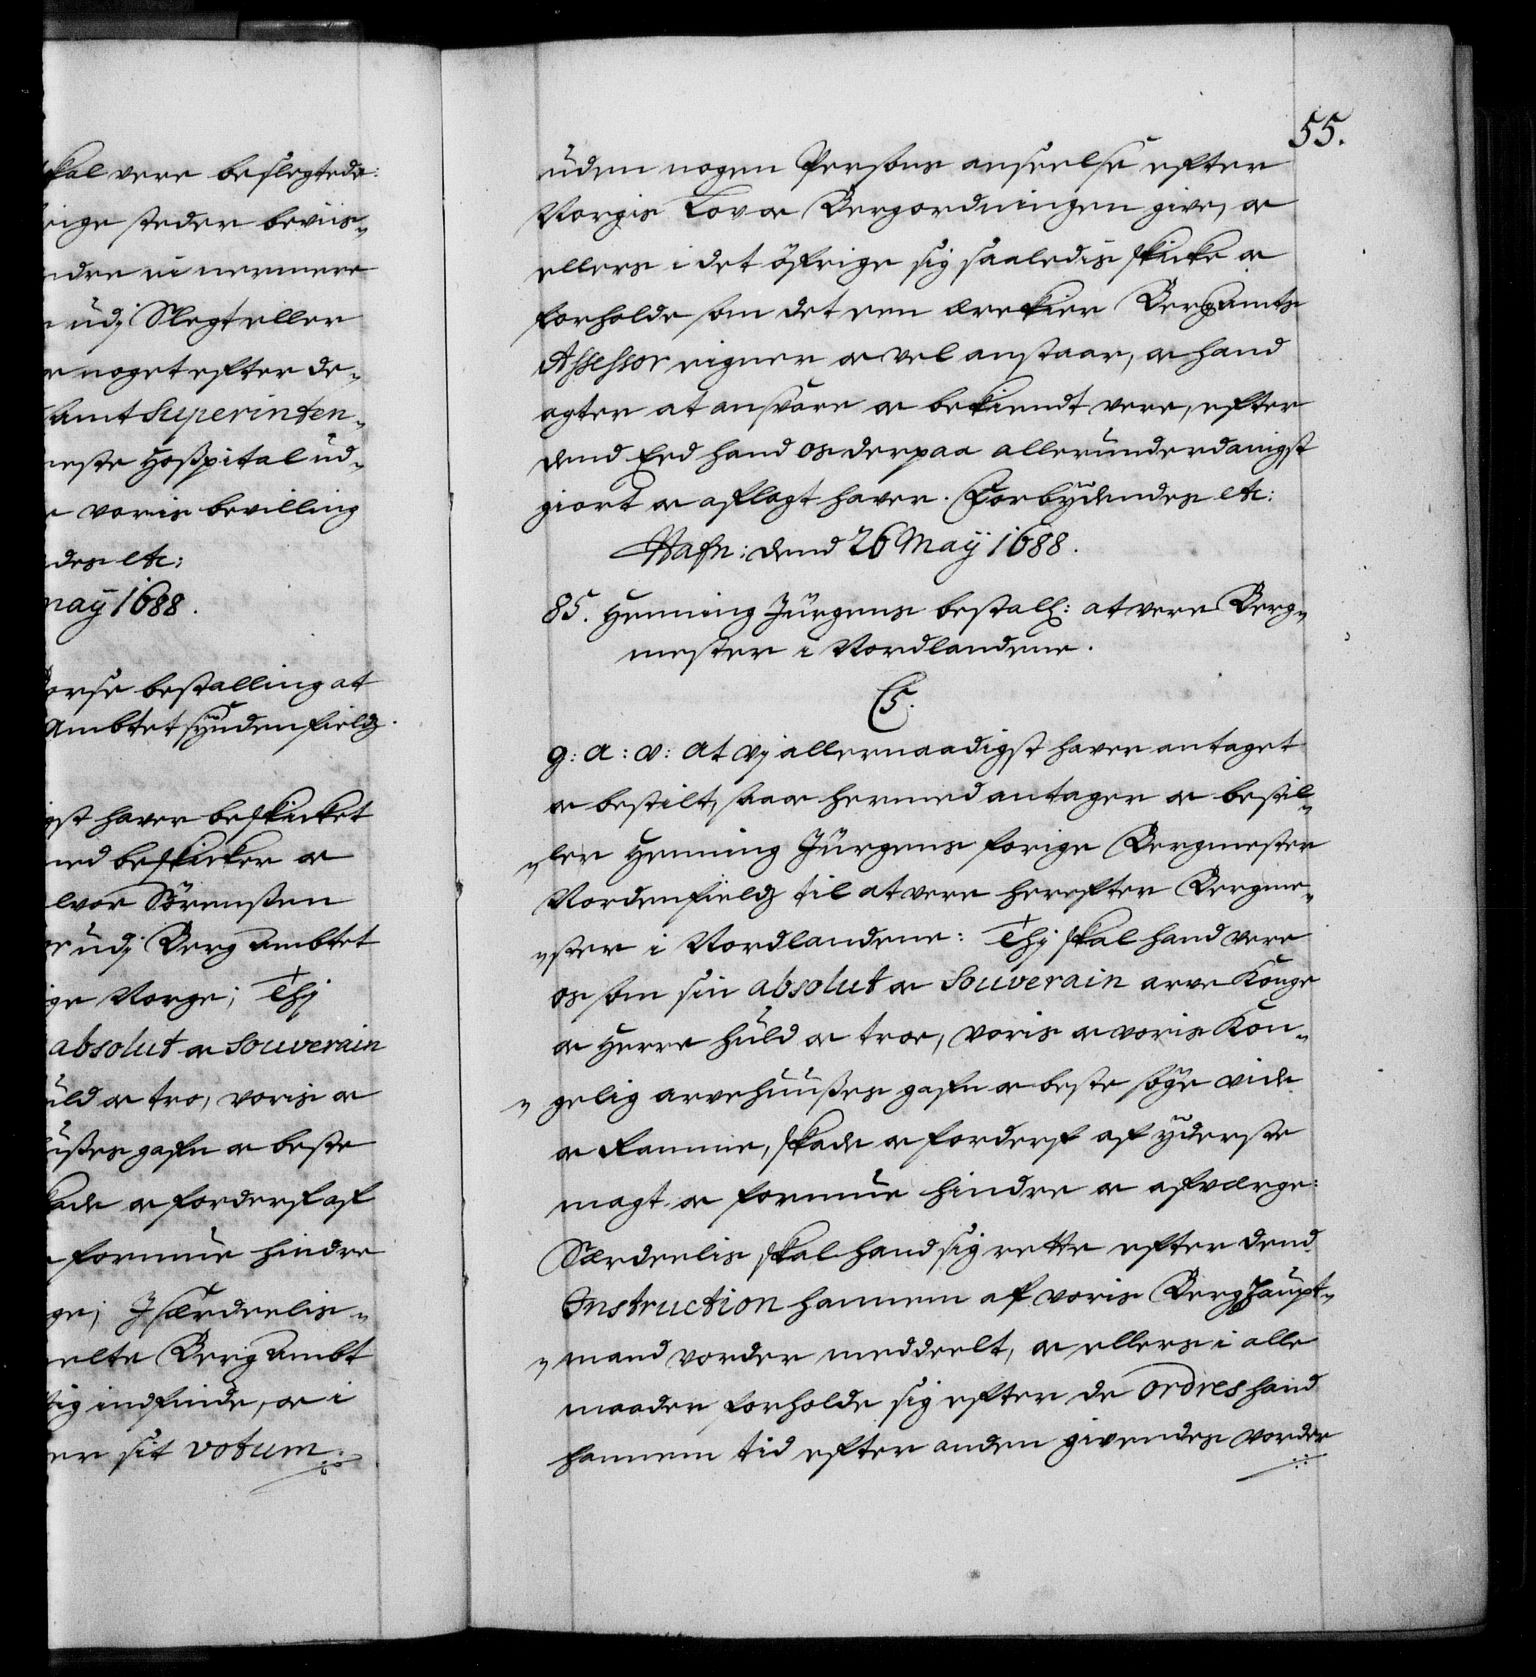 kal vere beslegtede:
rige steder beviis„
ndre ei nermere
udj Slegt eller
noget efter de„
Ambt Superinten„
neste Hospital ud„
voris bevilling
des etc:
may 1688.
orse bestalling at
Ambtet syndenfieldz.
gst haver beskicket
med beskicker oc
lvor Sörensen
udj Berg Ambtet
ige Norge; Thj
absolut oc Souverain
uld oc tro, voris oc
ußes gafn oc beste
kade oc forderf af
formue hindre
ge; Jsærdeelis„
melte Berg Ambt
tig indfinde, oc i
er sit votum.
55.
uden nogen Persons anseelse efter
Norgis Lov oc Bergordningen give, oc
ellers i det öfrige sig saaledis skicke oc
forholde som det een ærekier BergAmts
Assessor eigner oc vel anstaar, oc hand
agter at ansvare oc bekiendt vere, efter
dend Eed hand os derpaa allerunderdanigst
giort oc aflagt haver. Forbydendes etc:
Hafn: dend 26 Maÿ 1688.
85. Henning Jürgens bestall: at vere Berg„
mester i Nordlandene.
C5.
g: a: v: At vj allernaadigst haver antaget
oc bestilt, saa oc hermed antager oc bestil„
„ler Henning Jürgens forige Bergmester
Nordenfieldz til at vere herefter Bergme„
„ster i Nordlandene: Thj skal hand vere
os som sin absolut oc Souverain arve Konge
oc Herre huld oc troe, voris oc voris Kon„
„gelig arvehuußes gafn oc beste söge vide
oc ramme, skade oc forderf af yderste
magt oc formue hindre oc afværge:
Særdeelis skal hand sig rette efter dend
Instruction hannem af voris Berghaupt„
„mand vorder meddeelt, oc ellers i alle
maader forholde sig efter de ordres hand
hannem tid efter anden givendes vorder